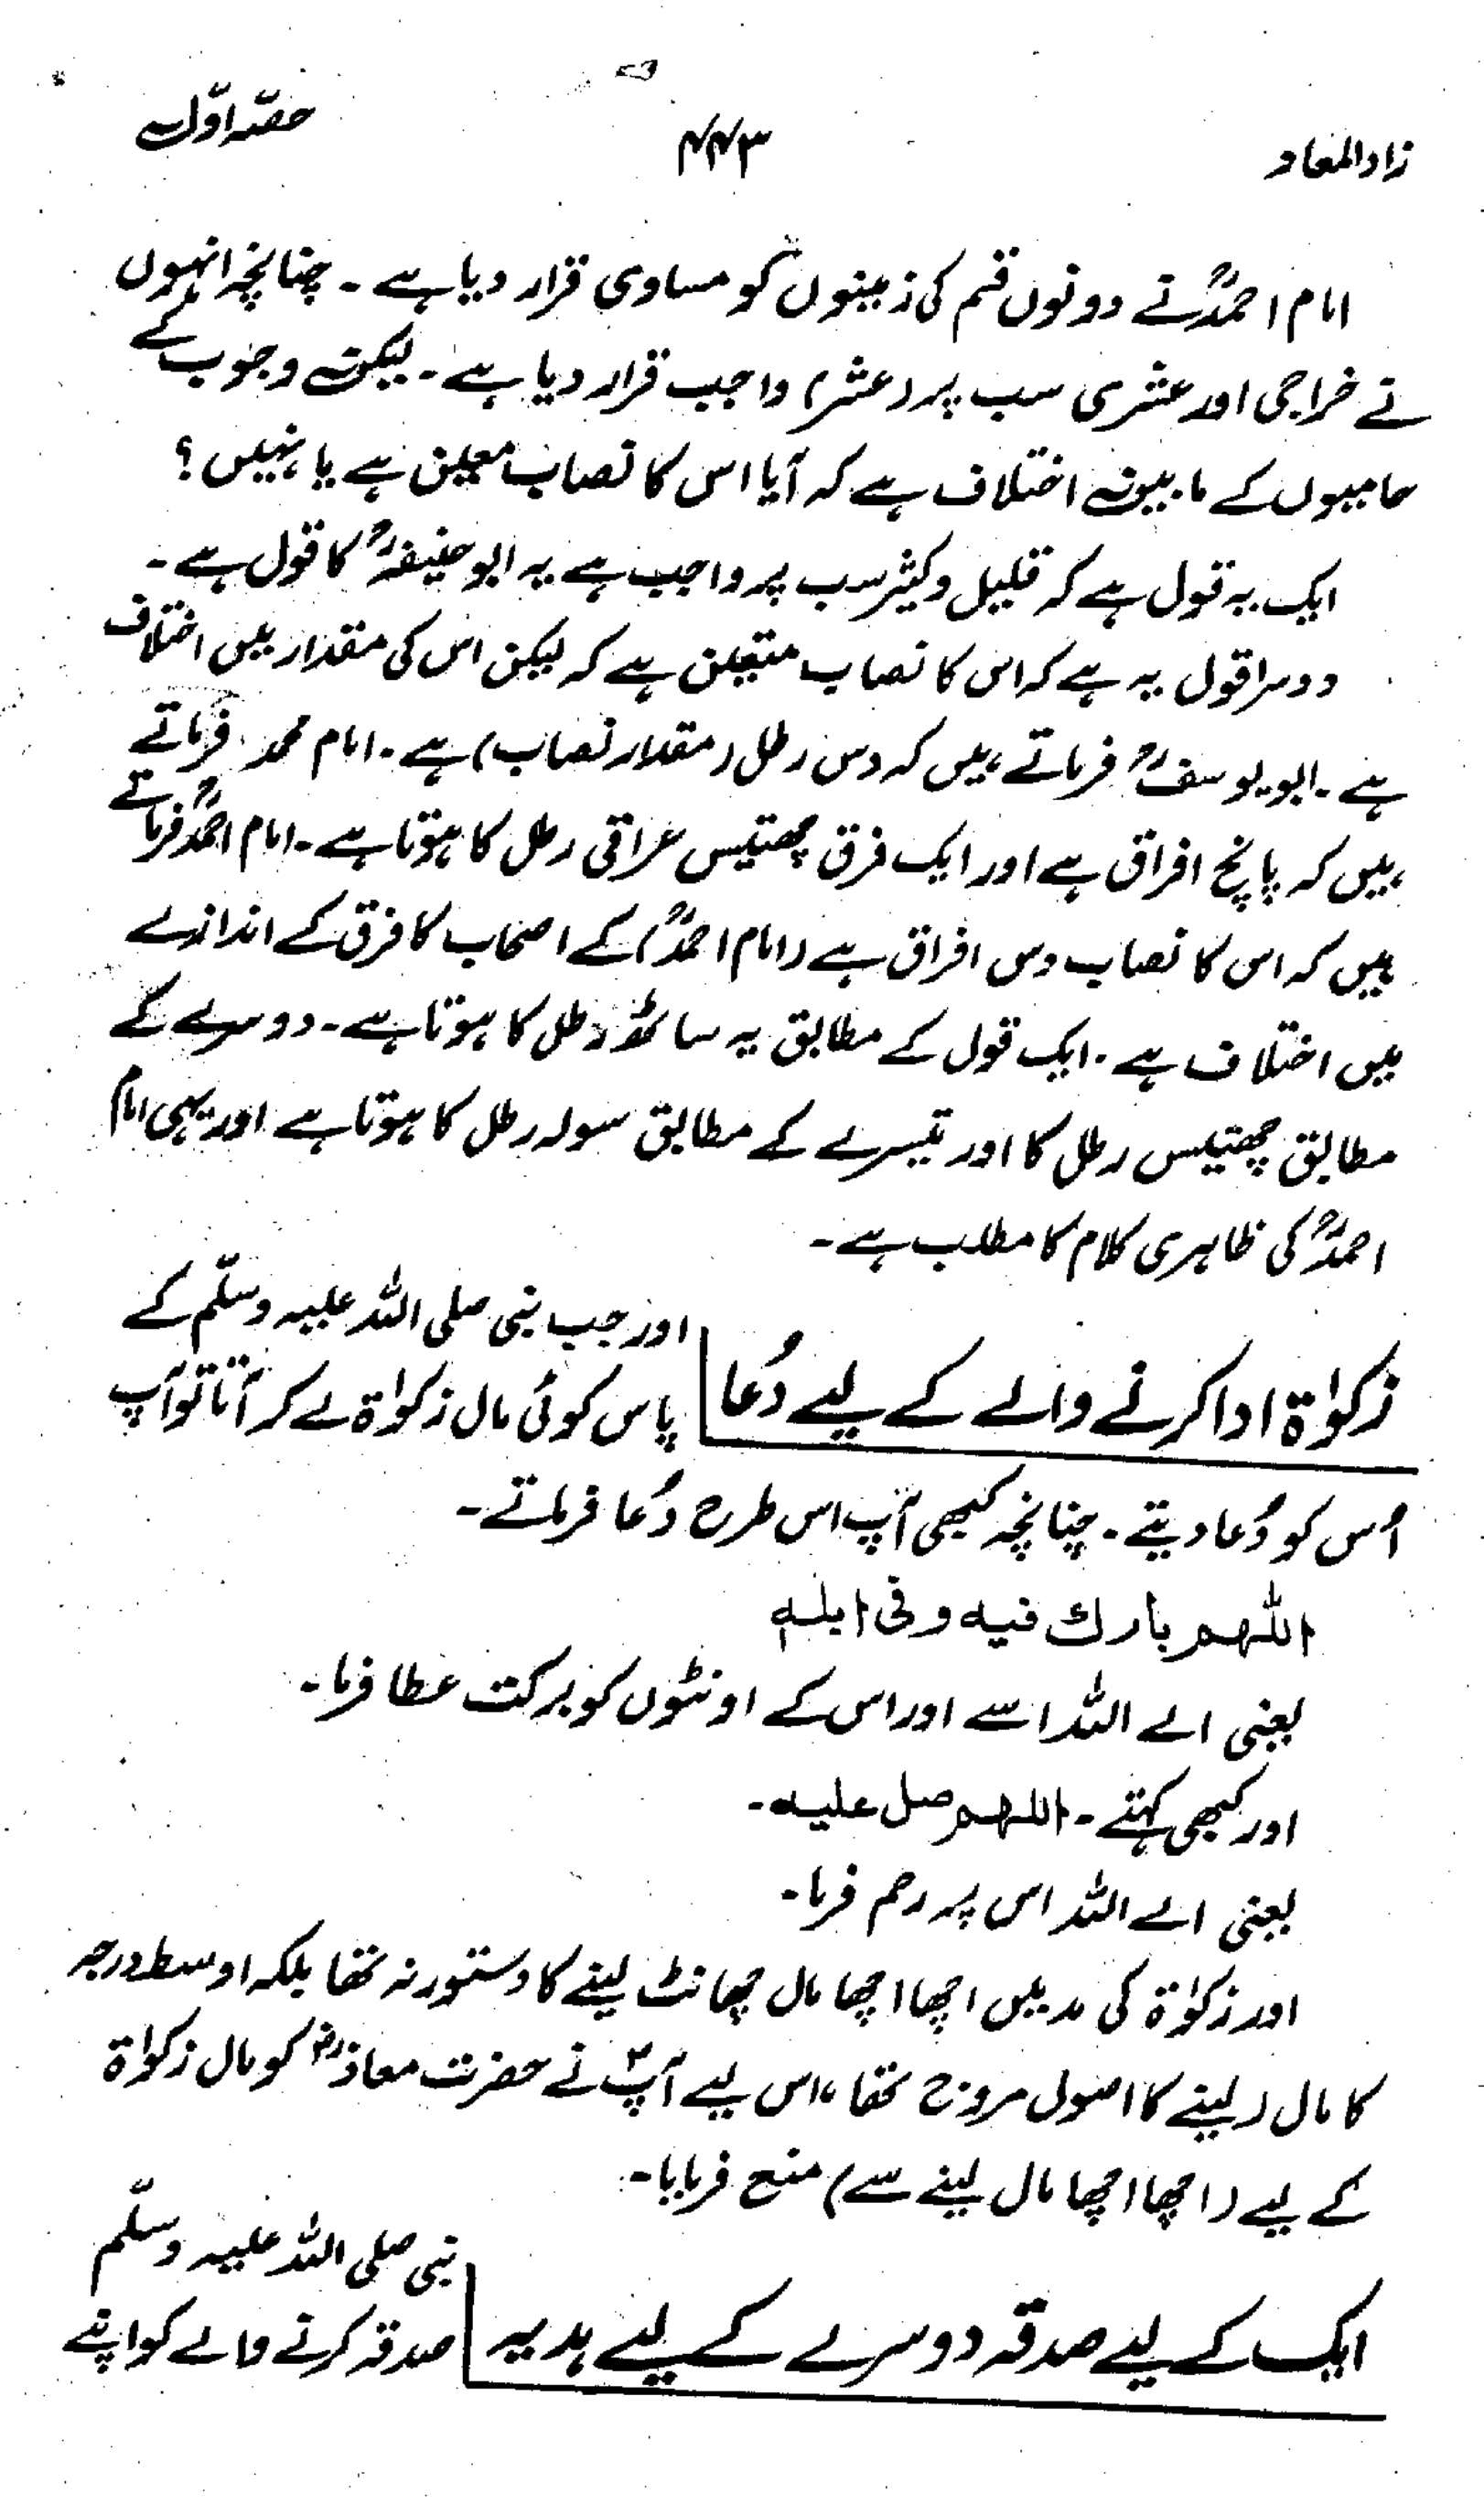 زادالمعاد ۴۴۳ حصّہ اوّل
امام احمدؒ نے دونوں قسم کی زمینوں کو مساوی قرار دیا ہے ۔ چنانچہ انہوں
نے خراجی اور عشری سب پر (عشر) واجب قرار دیا ہے ۔ لیکن وجوب کے
حامیوں کے مابین اختلاف ہے کہ آیا اس کا نصاب معین ہے یا نہیں ؟
ایک یہ قول ہے کہ قلیل و کثیر سب پر واجب ہے یہ ابو حنیفہؒ کا قول ہے ۔
دوسرا قول یہ ہے کہ اس کا نصاب متعین ہے کہ لیکن اس کی مقدار میں اختلاف
ہے ۔ ابو یوسفؒ فرماتے ہیں کہ دس رطل (مقدار نصاب) ہے ۔ امام محمد فرماتے
ہیں کہ پانچ افراق ہے اور ایک فرق چھتیس عراقی رطل کا ہوتا ہے ۔ امام احمدؒ فرماتے
ہیں کہ اس کا نصاب دس افراق ہے (امام احمدؒ) کے اصحاب کا فرق کے اندازے
میں اختلاف ہے ۔ ایک قول کے مطابق یہ ساٹھ رطل کا ہوتا ہے ۔ دوسرے کے
مطابق چھتیس رطل کا اور تیسرے کے مطابق سولہ رطل کا ہوتا ہے اور یہی امام
احمدؒ کی ظاہری کلام کا مطلب ہے ۔
زکوٰۃ ادا کرنے والے کے لیے دُعا
اور جب نبی صلی اللہ علیہ وسلّم کے
پاس کوئی مال زکوٰۃ لے کر آتا تو آپ
اُس کو دُعا دیتے ۔ چنانچہ کبھی آپ اس طرح دُعا فرماتے ۔
اللهم بارك فيه وفی ابله
یعنی اے اللہ اسے اور اس کے اونٹوں کو برکت عطا فرما ۔
اور کبھی کہتے ۔ اللهم صل عليه ۔
یعنی اے اللہ اس پر رحم فرما ۔
اور زکوٰۃ کی مد میں اچھا اچھا مال چھانٹ لینے کا دستور نہ تھا بلکہ اوسط درجہ
کا مال (لینے کا اصول مروج تھا) اس لیے آپؐ نے حضرت معاذؓ کو مال زکوٰۃ
کے لیے (اچھا اچھا مال لینے سے) منع فرمایا ۔
ایک کے لیے صدقہ دوسرے کے لیے ہدیہ
نبی صلی اللہ علیہ وسلّم
صدقہ کرنے والے کو اپنے